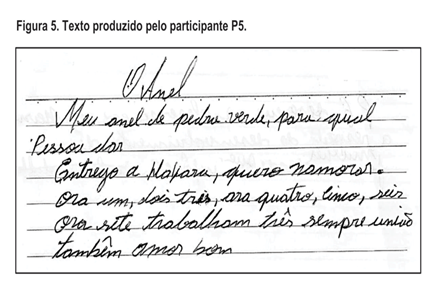 Figura 5. Texto produzido pelo participante P5.
O Anel
Meu anel de pedra verde, para qual
Pessoa dar
Entrego a Mayara, quero namorar.
Ora um, dois três, ora quatro, cinco, seis
Ora sete trabalham três sempre união
também amor bom